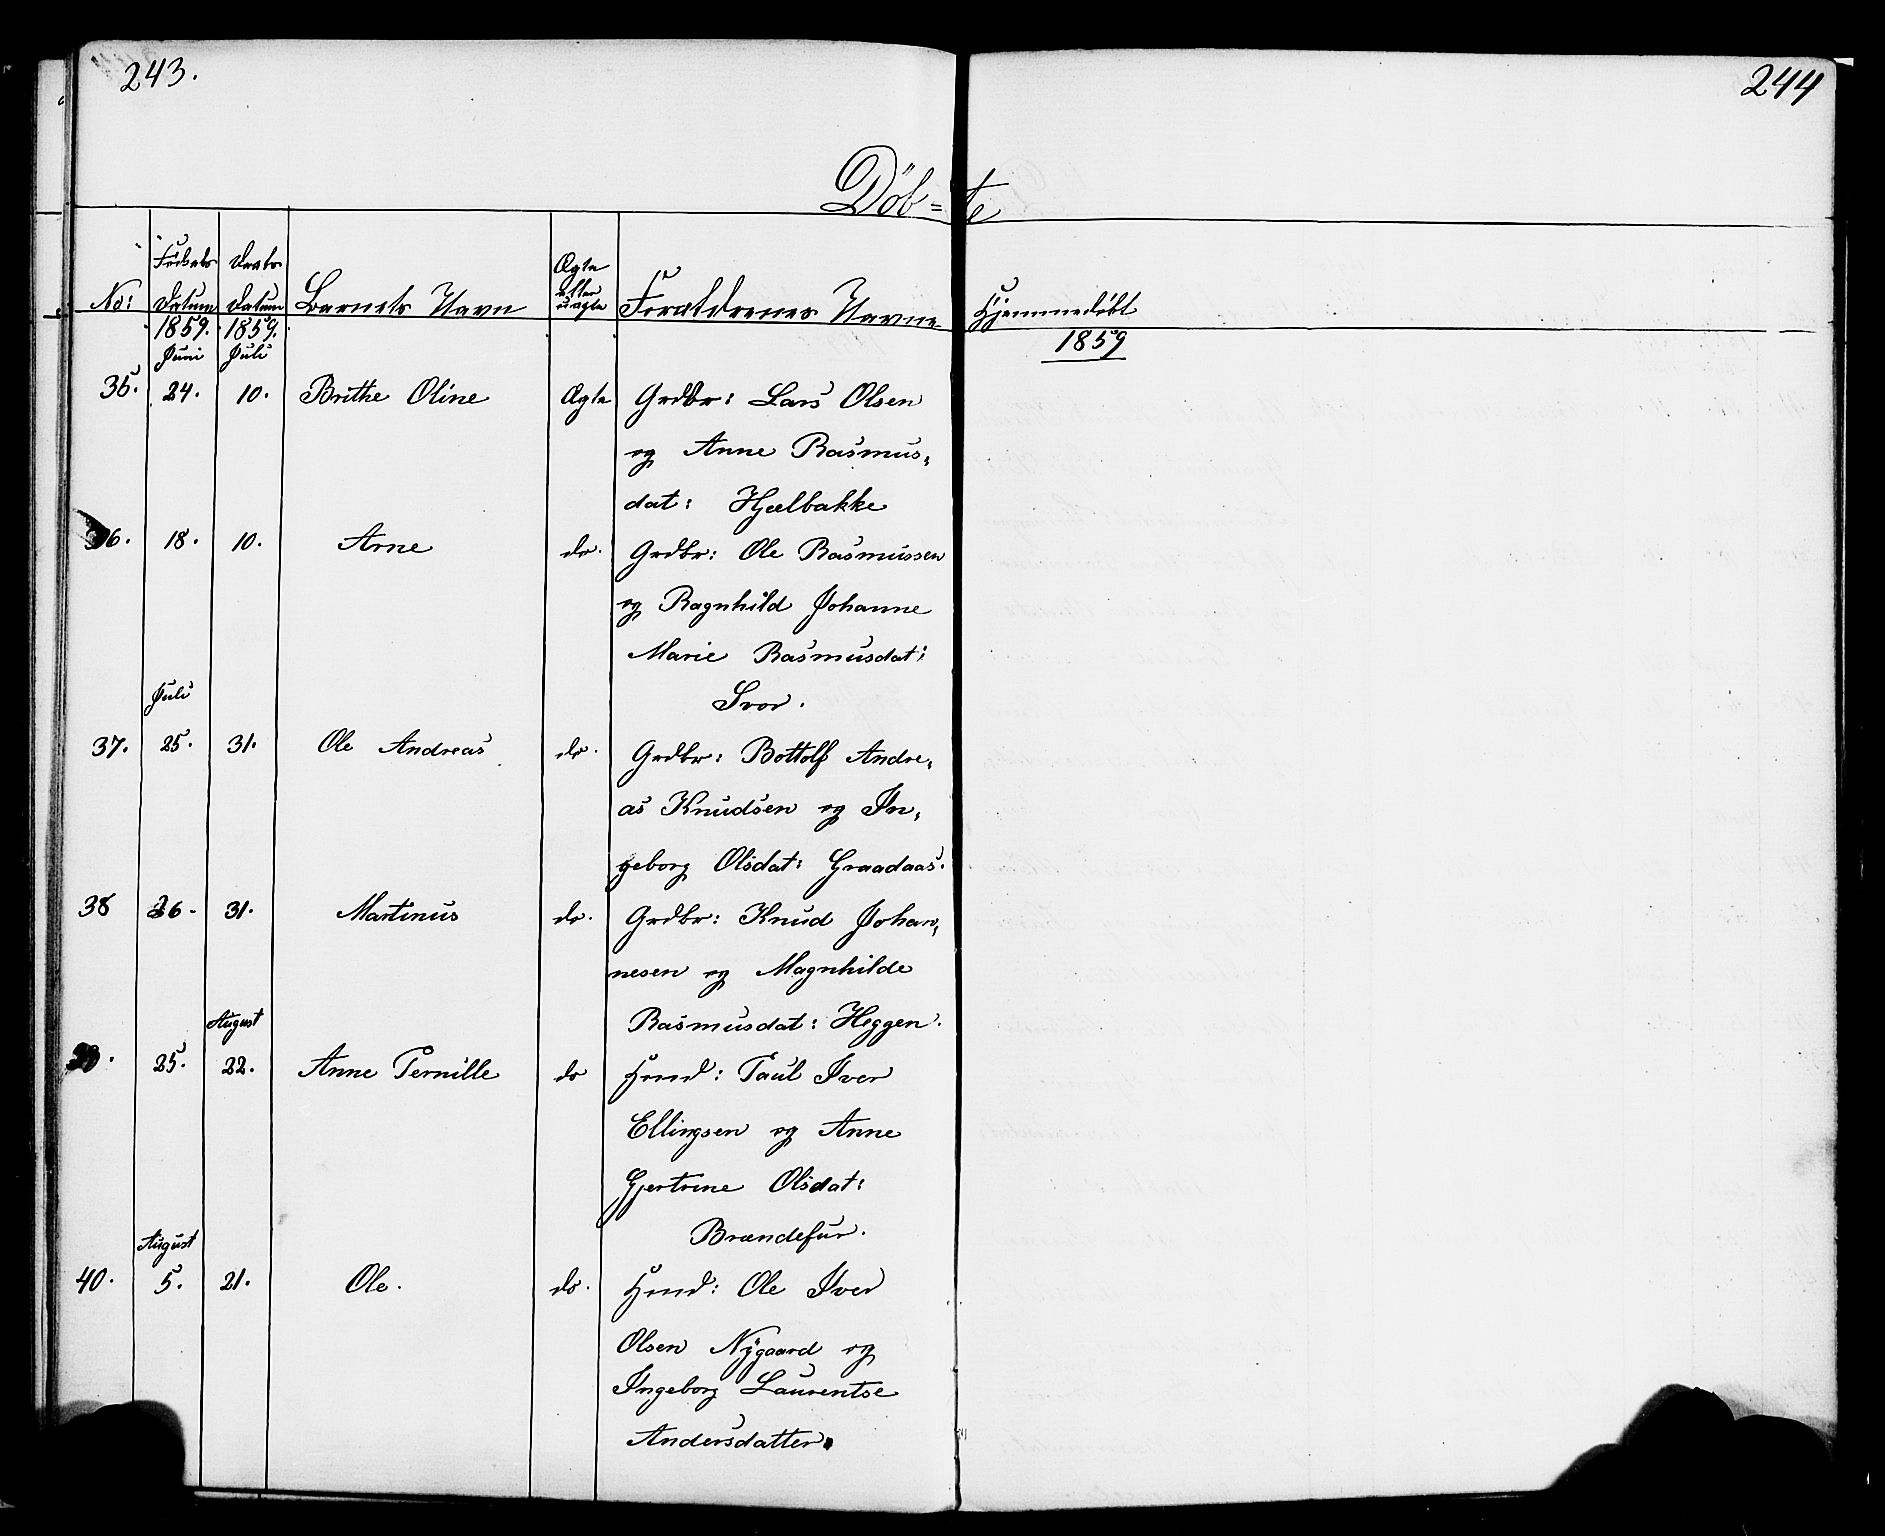 243.
244
Döb=te
No: Fødsels Datum Daabs Datum Barnets Navn Ægte eller uægte Forældrenes Navne Hjemmedøbt
1859. 1859. 1859
Juni Juli
35. 24. 10. Brithe Oline Ægte Grdbr: Lars Olsen
og Anne Rasmus,
dat: Hjælbakke
36. 18. 10. Arne do. Grdbr: Ole Rasmussen
og Ragnhild Johanne
Marie Rasmusdat:
Juli Svor.
37. 25. 31. Ole Andreas do. Grdbr: Bottolf Andre,
as Knudsen og In,
geborg Olsdat: Graadaas.
38 26. 31. Martinus do. Grdbr: Knud Johan,
nesen og Magnhilde
August Rasmusdat: Heggen.
39. 25. 22. Anne Pernille do Hmd: Paul Iver
Ellingsen og Anne
Gjertrine Olsdat:
August Brændefur.
40. 5. 21. Ole. do. Hmd: Ole Iver
Olsen Nygaard og
Ingeborg Laurentse
Andersdatter.